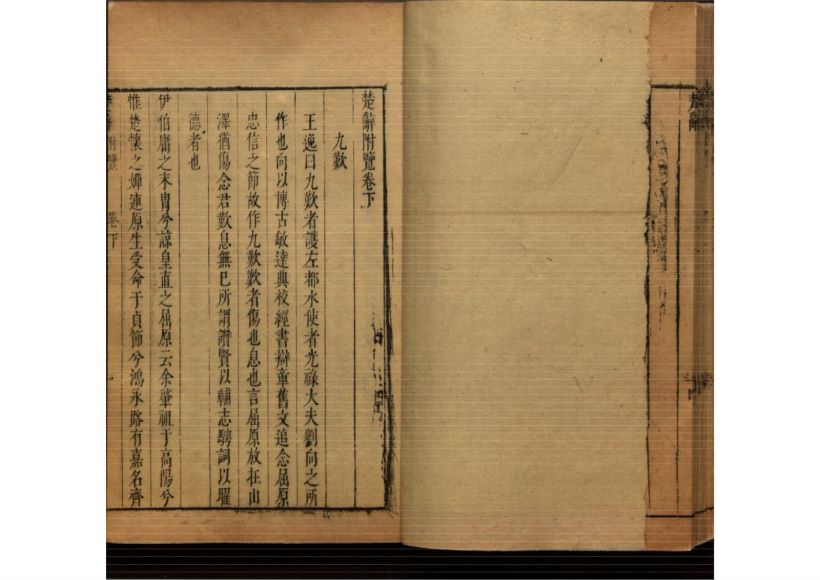 楚辭附覽卷下
九歎
王逸曰九歎者護左都水使者光祿大夫劉向之所
作也向以博古敏達典校經書辯章舊文追念屈原
忠信之節故作九歎歎者傷也息也言屈原放在山
澤猶傷念君歎息無已所謂讚賢以輔志騁詞以曜
德者也
伊伯庸之末胄兮諒皇直之屈原云余肇祖于高陽兮
惟楚懷之嬋連原生受命于貞節兮鴻永路有嘉名齊
附覽 卷下